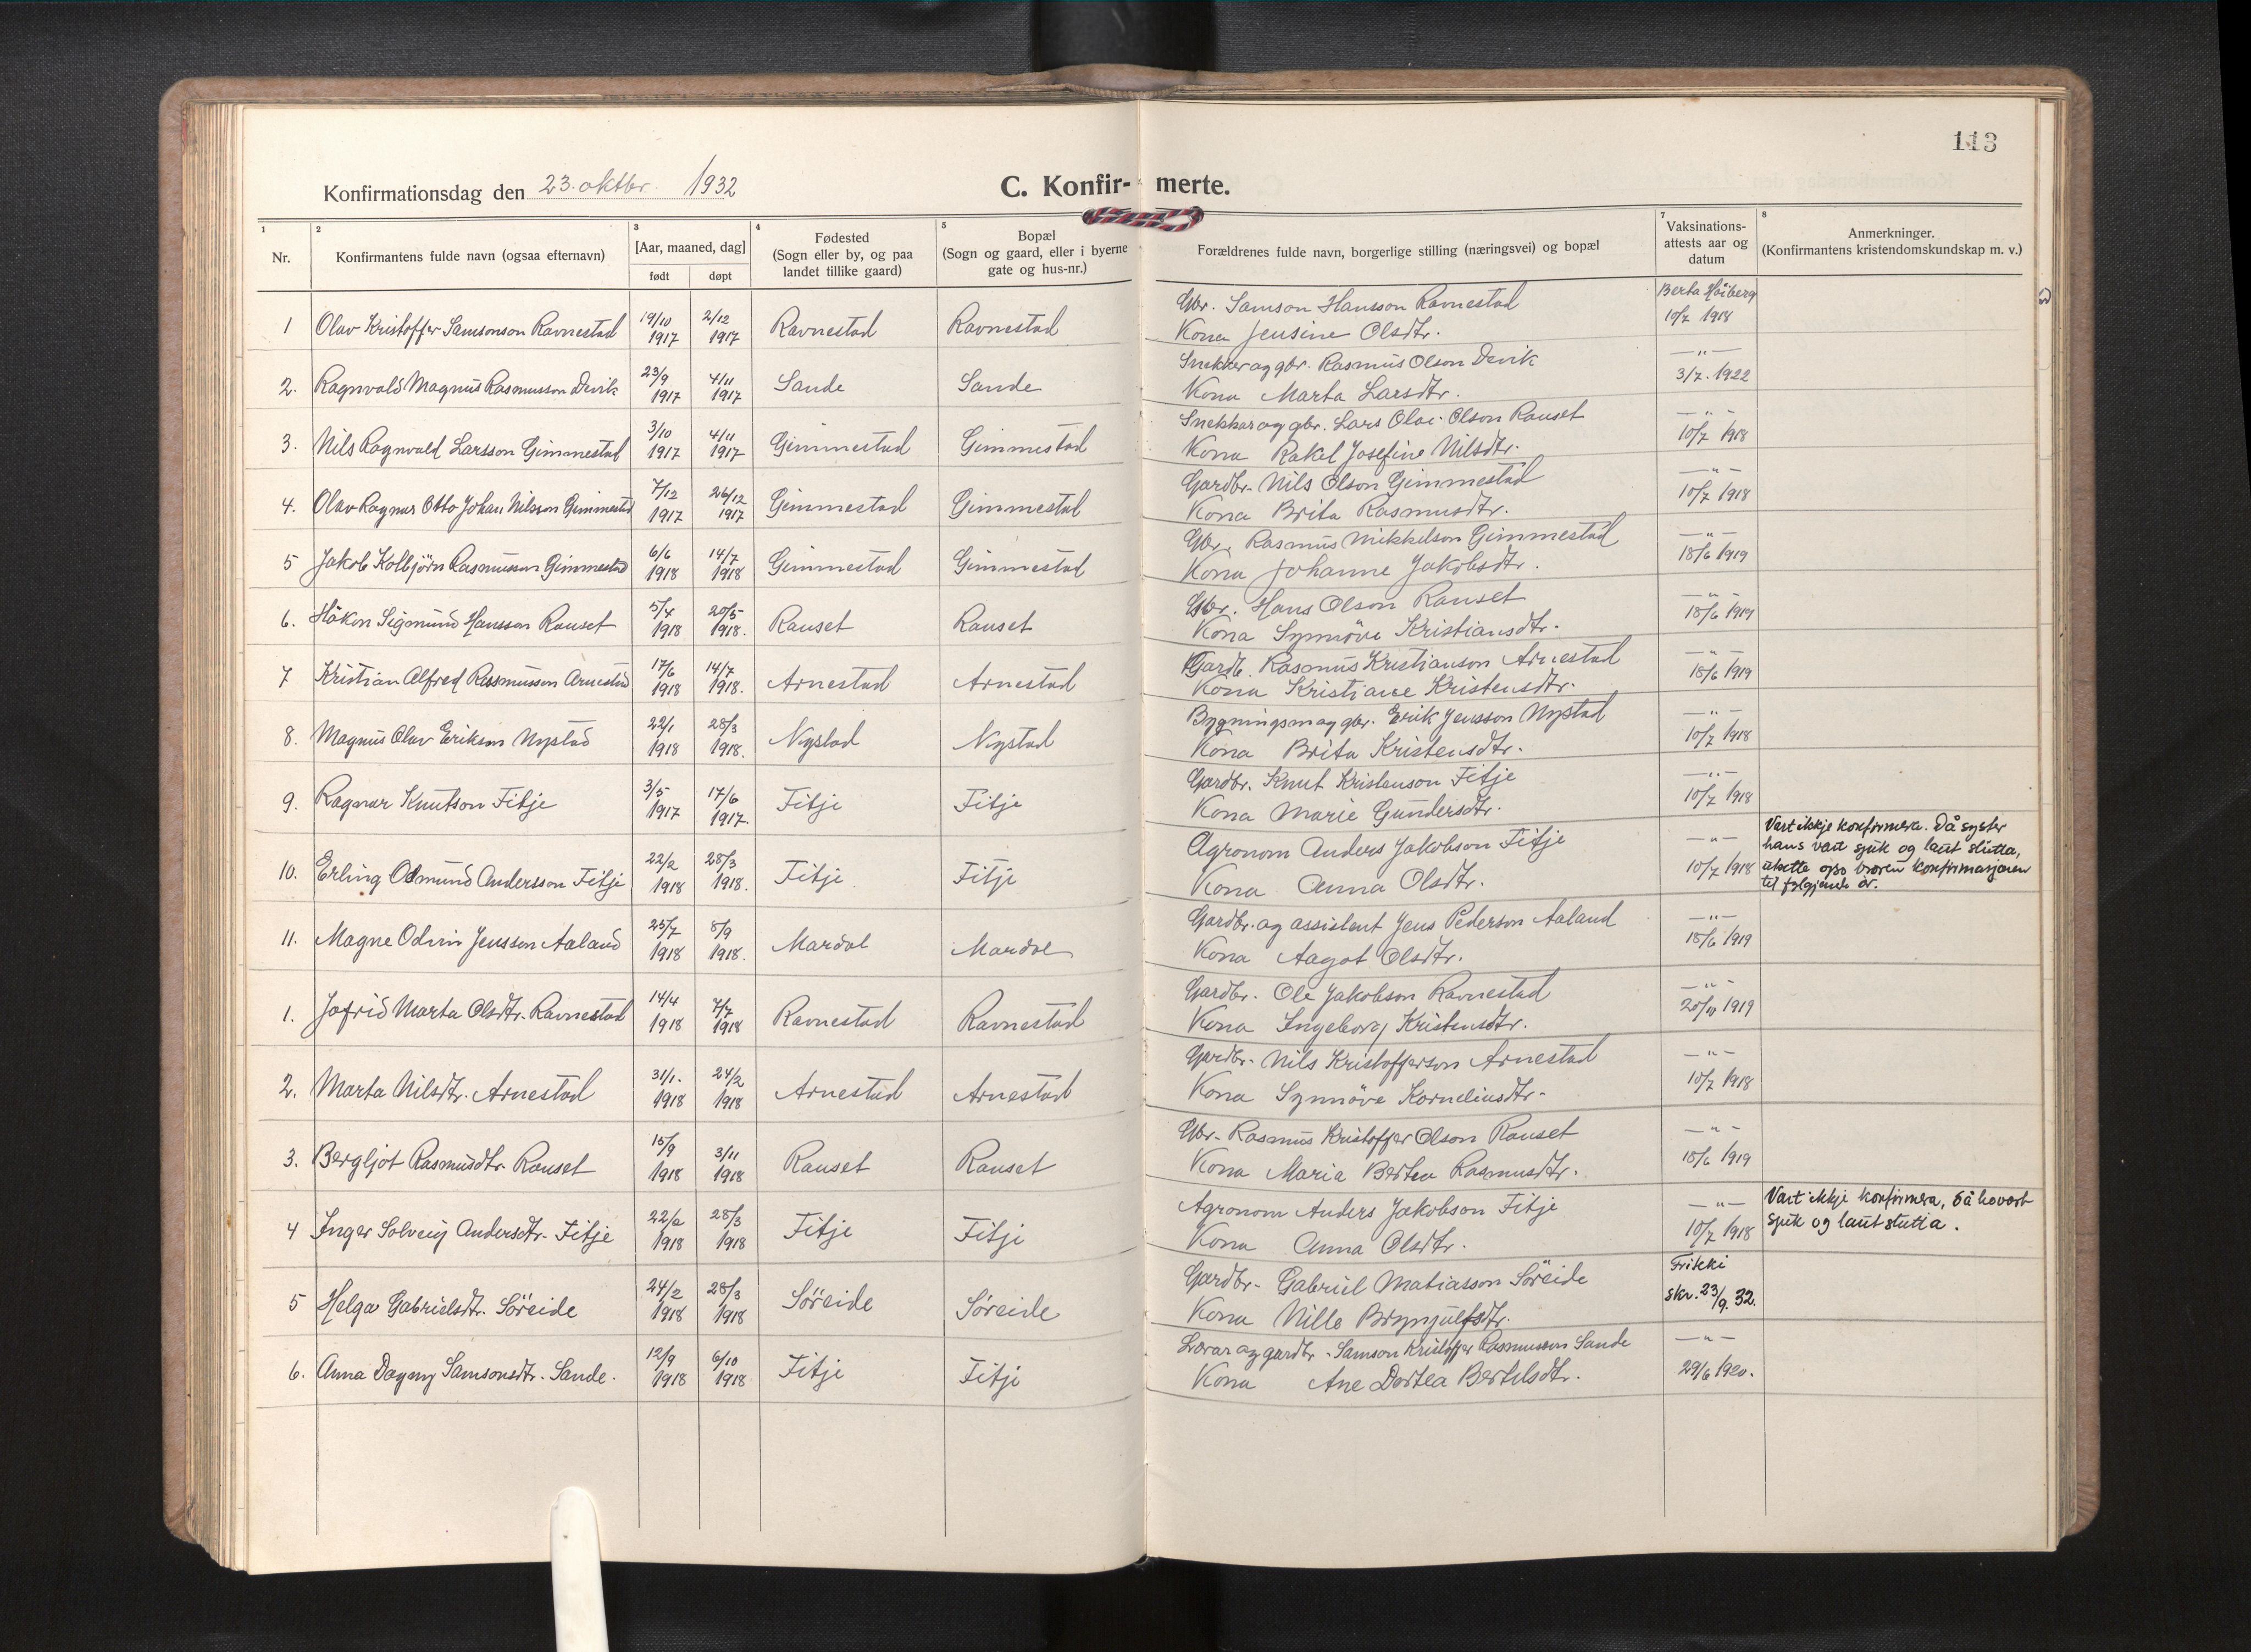 113
Konfirmationsdag den 23. oktbr. 1932
C. Konfir- merte.
1 2 3 4 5 7 8
Nr. Konfirmantens fulde navn (ogsaa efternavn) [Aar, maaned, dag] født døpt Fødested (Sogn eller by, og paa landet tillike gaard) Bopæl (Sogn og gaard, eller i byerne gate og hus-nr.) Forældrenes fulde navn, borgerlige stilling (næringsvei) og bopæl Vaksinations-attests aar og datum Anmerkninger. (Konfirmantens kristendomskundskap m. v.)
1 Olav Kristoffer Samsonson Ravnestad 19/10 1917 2/12 1917 Ravnestad Ravnestad Gbr. Samson Hansson Ravnestad Berta Höiberg
Kona Jensine Olsdtr. 10/7 1918
2. Ragnvald Magnus Rasmusson Devik 23/9 1917 4/11 1917 Sande Sande Snekker og gbr. Rasmus Olson Devik —"—
Kona Marta Larsdtr. 3/7. 1922
3. Nils Ragnvald Larsson Gimmestad 3/10 1917 4/11 1917 Gimmestad Gimmestad Snekkar og gbr. Lars Olai Olson Rauset —"—
Kona Rakel Josefine Nilsdtr. 10/7 1918
4. Olav Ragnar Otto Johan Nilsson Gimmestad 7/12 1917 26/12 1917 Gimmestad Gimmestad Gardbr. Nils Olson Gimmestad —"—
Kona Brita Rasmusdtr. 10/7 1918
5 Jakob Kolbjörn Rasmusson Gimmestad 6/6 1918 14/7 1918 Gimmestad Gimmestad Gbr. Rasmus Mikkelson Gimmestad —"—
Kona Johanne Jakobsdtr. 18/6 1919
6. Håkon Sigmund Hansson Rauset 5/4 1918 20/5 1918. Rauset Rauset Gbr. Hans Olson Rauset —"—
Kona Synnöve Kristiansdtr. 18/6 1919
7 Kristian Alfred Rasmusson Arnestad 17/6 1918 14/7 1918. Arnestad Arnestad Gardb. Rasmus Kristianson Arnestad —"—
Kona Kristiane Kristensdtr. 18/6 1919
8. Magnus Olav Erikson Nystad 22/1 1918 28/3 1918. Nystad Nystad Bygningsm og gbr. Erik Jensson Nystad —"—
Kona Brita Kristensdtr. 10/7 1918
9. Ragnar Knutson Fitje 3/5 1917 17/6 1917. Fitje Fitje Gardbr. Knut Kristenson Fitje —"—
Kona Marie Gundersdtr. 10/7 1918
10. Erling Odmund Andersson Fitje 22/2 1918 28/3 1918. Fitje Fitje Agronom Anders Jakobson Fitje —"—
Kona Anna Olsdtr. 10/7 1918
Vart ikkje konfirmera. Då syster
hans vart sjuk og laut slutta,
utsette ogso broren konfirmasjonen
til fylgjande år.
11. Magne Odvin Jensson Aaland 25/7 1918 8/9 1918. Mardal Mardal Gardbr. og assistent Jens Pederson Aaland —"—
Kona Aagot Olsdtr. 18/6 1919
1. Jofrid Marta Olsdtr. Ravnestad 14/4 1918 7/7 1918 Ravnestad Ravnestad Gardbr. Ole Jakobson Ravnestad —"—
Kona Ingeborg Kristensdtr. 1919
2. Marta Nilsdtr. Arnestad 31/1. 1918 24/2 1918 Arnestad Arnestad Gardbr. Nils Kristofferson Arnestad —"—
Kona Synnöve Korneliusdtr. 10/7 1918
3. Bergljot Rasmusdtr. Rauset 15/9 1918 3/11 1918 Rauset Rauset Gbr. Rasmus Kristoffer Olson Rauset —"—
Kona Maria Bertea Rasmusdtr. 18/6 1919
4 Inger Solveig Andersdtr. Fitje 22/2 1918 28/3 1918 Fitje Fitje Agronom Anders Jakobson Fitje —"—
Kona Anna Olsdtr. 10/7 1918
Vart ikkje konfirmera, då ho vart
sjuk og laut slutta.
5 Helga Gabrielsdtr. Söreide 24/2 1918 28/3 1918 Söreide Söreide Gardbr. Gabriel Matiasson Söreide
Kona Nille Brynjulfsdtr. skr. 23/9. 32.
6. Anna Dagny Samsonsdtr. Sande. 12/9 1918 6/10 1918 Fitje Fitje Lærar og gardbr. Samson Kristoffer Rasmusson Sande —"—
Kona Ane Dortea Bertelsdtr. 29/6 1920.